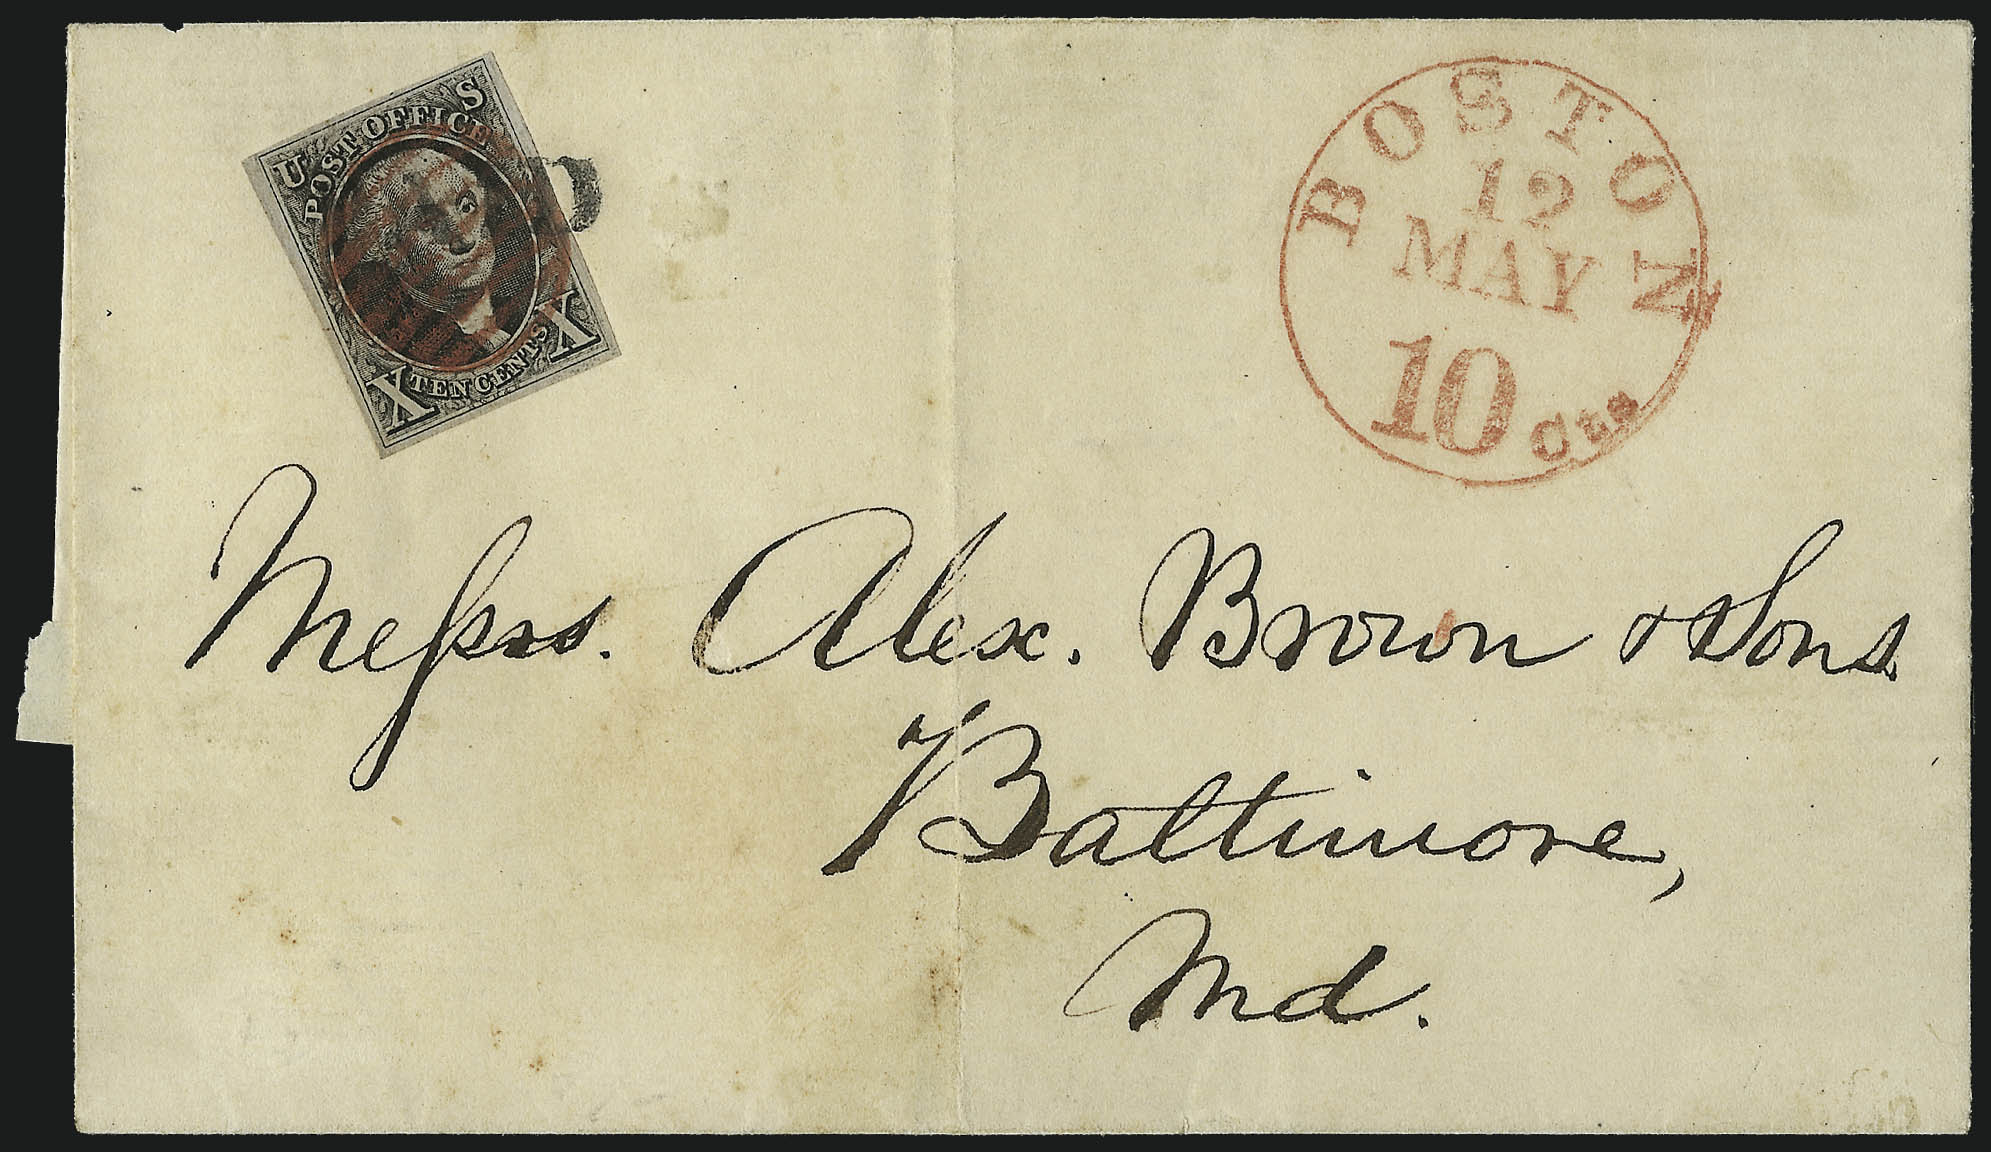 U S
POST OFFICE
X TEN CENTS X
BOSTON
12
MAY
10 Cts
Messrs. Alex. Brown & Sons.
Baltimore,
Md.